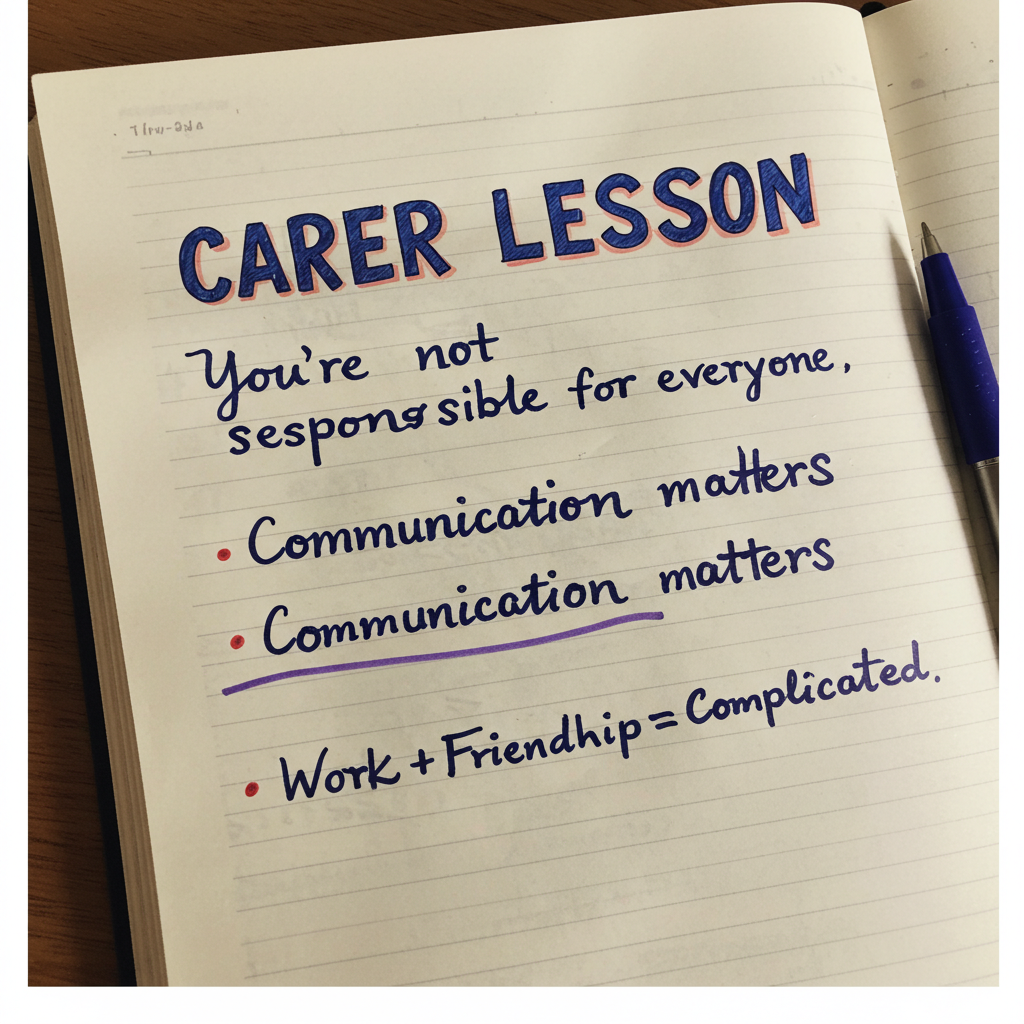 CARER LESSON
You're not
sesponssible for everyone,
• Communication matters
• Communication matters
• Work + Friendhip = Complicated.